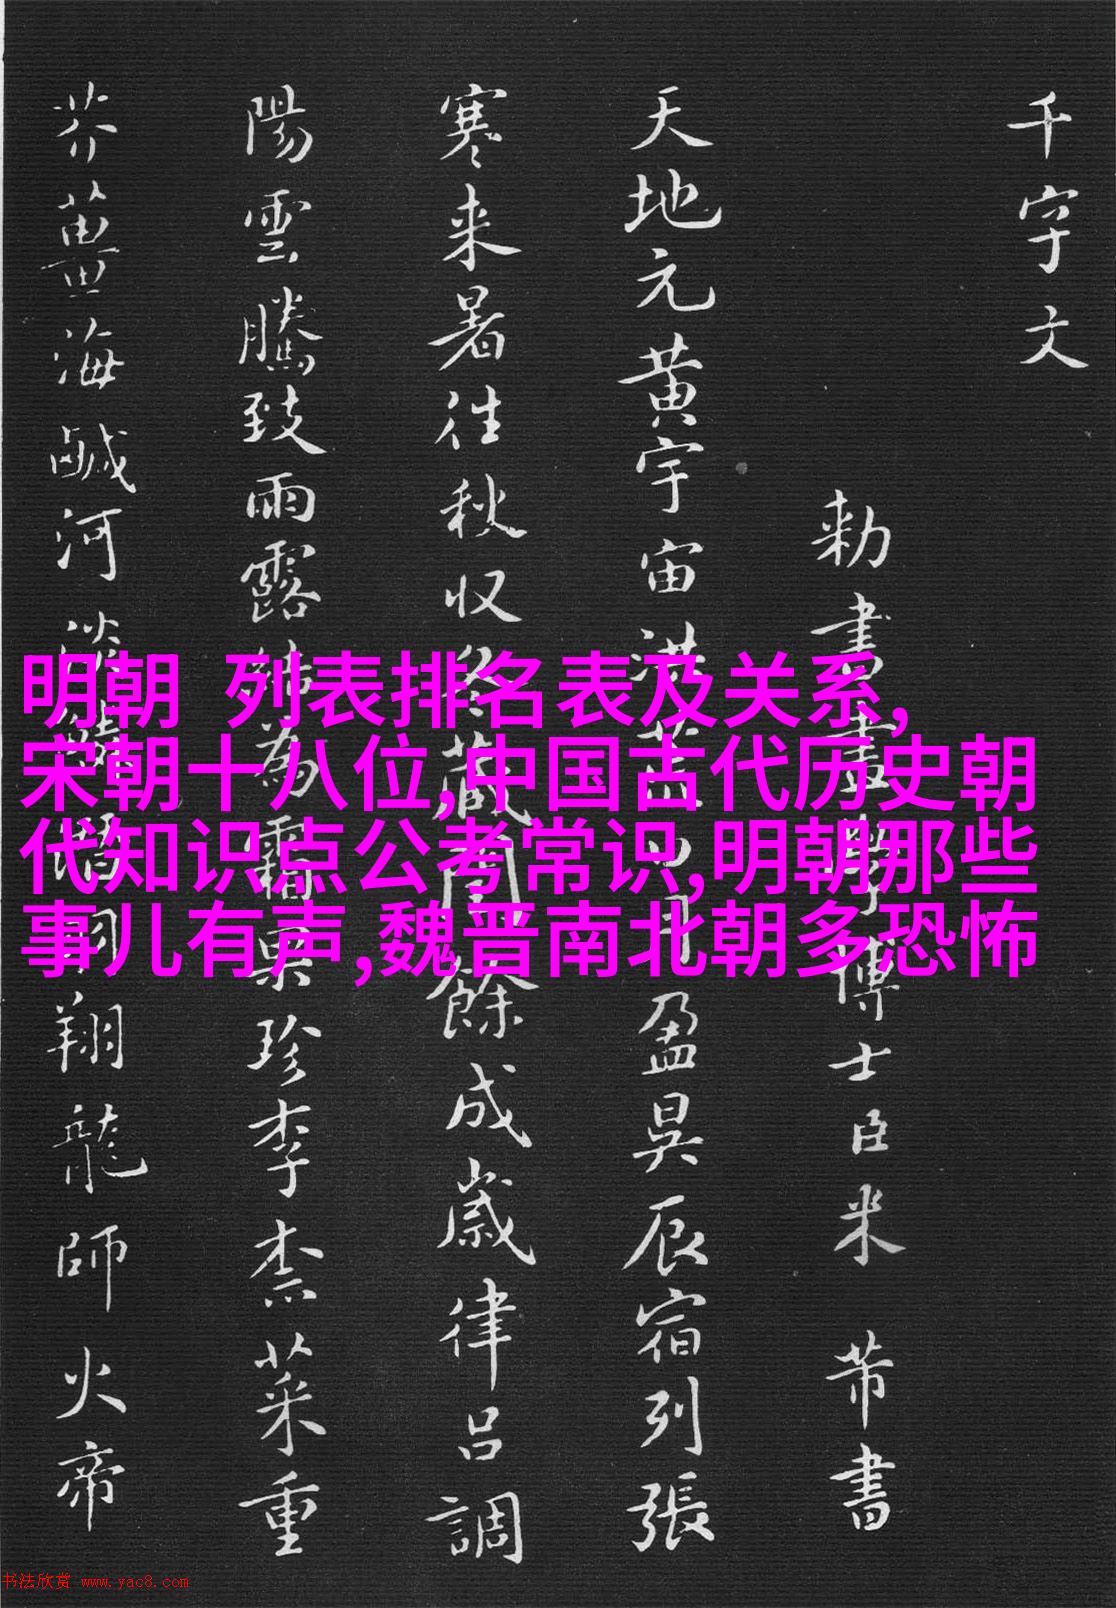 千字文
勅書畫學博士臣米 芾書
天地元黄宇宙洪荒日月盈昃辰宿列張
寒来暑往秋収冬藏閏餘成歲律呂調
陽雲騰致雨露結為霜果珍李柰菜重
芥薑海鹹河淡鱗潛羽翔龍師火帝
明朝 列表排名表及关系,
宋朝十八位,中国古代历史朝
代知识点公考常识,明朝那些
事儿有声,魏晋南北朝多恐怖
书法欣赏 www.yac8.com